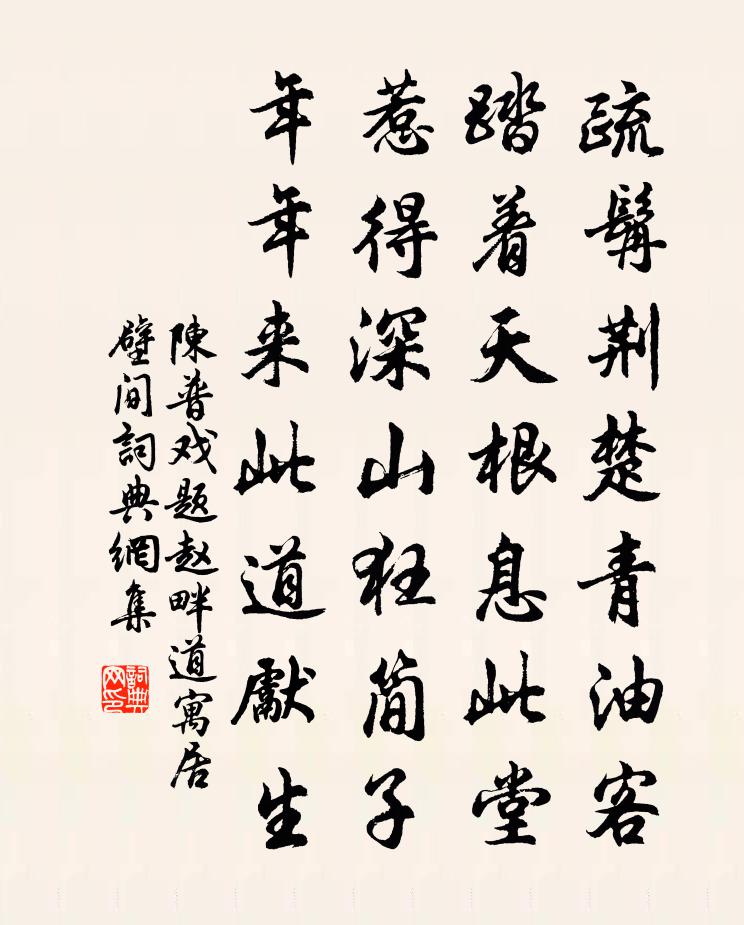 疏髯荆楚青油客
踏着天根息此堂
惹得深山狂简子
年年来此道献生
陳普戏题赵畔道寓居
壁间詞典網集
詞典网印